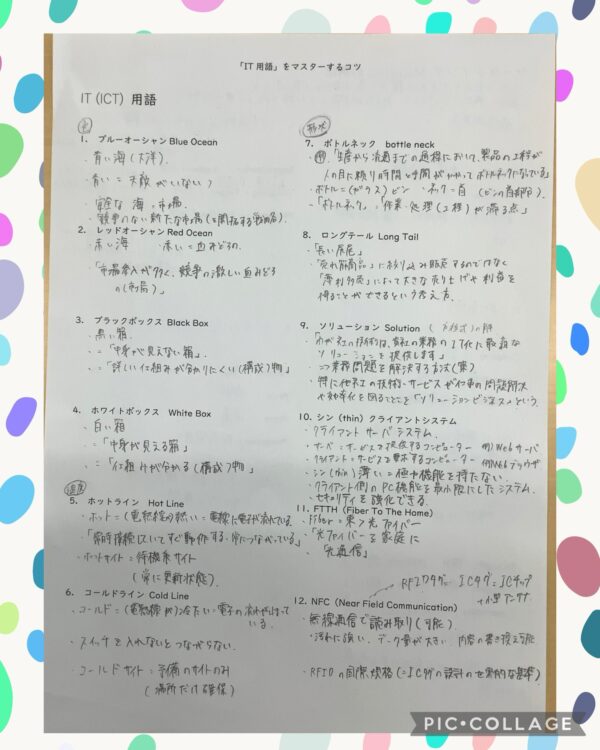 「IT用語」をマスターするコツ
IT (ICT) 用語
色
1. ブルーオーシャン Blue Ocean
・青い海(大洋).
・青い = 大敵がいない
海 = 市場.
・競争のない新たな市場(を開拓する戦略).
2. レッドオーシャン Red Ocean
・赤い海 赤い = 血みどろの.
・「市場参入が多く、競争の激しい血みどろ
の(市場)」
3. ブラックボックス Black Box
・黒い箱.
・=「中身が見えない箱」.
・=「詳しい仕組みが分かりにくい(構成)物」
4. ホワイトボックス White Box
・白い箱
・=「中身が見える箱」
・=「仕組みが分かる(構成)物」
温度
5. ホットライン Hot Line
・ホット=(電熱線が)熱い=電線に電子が流れている.
・「常時接続していてすぐ動作する・常につながっている」
・ホットサイト=待機系サイト
(常に更新状態).
6. コールドライン Cold Line
・コールド=(電熱線が)冷たい=電子の流れが止まって
いる.
・スイッチを入れないとつながらない.
・コールドサイト=予備のサイトのみ
(場所だけ確保)
形状
7. ボトルネック bottle neck
・「生産から流通までの過程において、製品の工程が
人の目に頼り時間と手間がかかってボトルネックになっている」
・ボトル=(ガラス)ビン ・ネック=首 (ビンの首部分).
・「ボトルネック」=「作業・処理(工程)が滞る点」
8. ロングテール Long Tail
・「長い尾尻」
・「売れ筋商品」に絞り込み販売するのではなく
「薄利多売」によって大きな売り上げや利益を
得ることができるという考え方.
9. ソリューション Solution (方程式)の解
・「わが社の技術は、貴社の業務のIT化に最適な
ソリューションを提供します」
・業務問題を解決する方法(策)
・特に他社の技術・サービスが仕事の問題解決
や効率化を図ることを「ソリューションビジネス」という.
10. シン (thin) クライアントシステム
・クライアントサーバシステム.
・サーバ=サービスを提供するコンピューター 例)Webサーバ
・クライアント=サービスを要求するコンピューター 例)Webブラウザ
・シン(thin) 薄い=極力機能を持たない.
・クライアント側のPC機能を最小限にしたシステム.
・セキュリティを強化できる.
11. FTTH (Fiber To The Home)
・Fiber = 束 > 光ファイバー
・「光ファイバーを家庭に
「光通信」
RFIDタグ=ICタグ=ICチップ
+小型アンテナ
12. NFC (Near Field Communication)
・無線通信で読み取り(可能)
・汚れに強い、データ量が大きい、内容の書き換え可能
・RFIDの国際規格(=ICタグの設計の世界的な基準)
PIC•COLLAGE